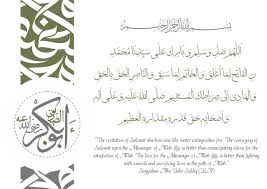 بسم الله الرحمن الرحيم
اللهم صل وسلم وبارك على سيدنا محمد
الفاتح لما أغلق والخاتم لما سبق والناصر الحق بالحق
والهادي إلى صراطك المستقيم صلى الله عليه
وعلى آله وأصحابه حق قدره ومقداره العظيم
أبو بكر
الصديق
رضي الله عنه
"The recitation of Salawat dissolves sins like water extinguishes fire. The conveying of
Salaam upon the Messenger of Allah ﷺ is better than emancipating slaves for the
satisfaction of Allah. The love for the Messenger of Allah ﷺ is better than fighting
with swords and sacrificing lives in the path of Allah."
Sayyidina Abu Bakr Siddiq (R.A)